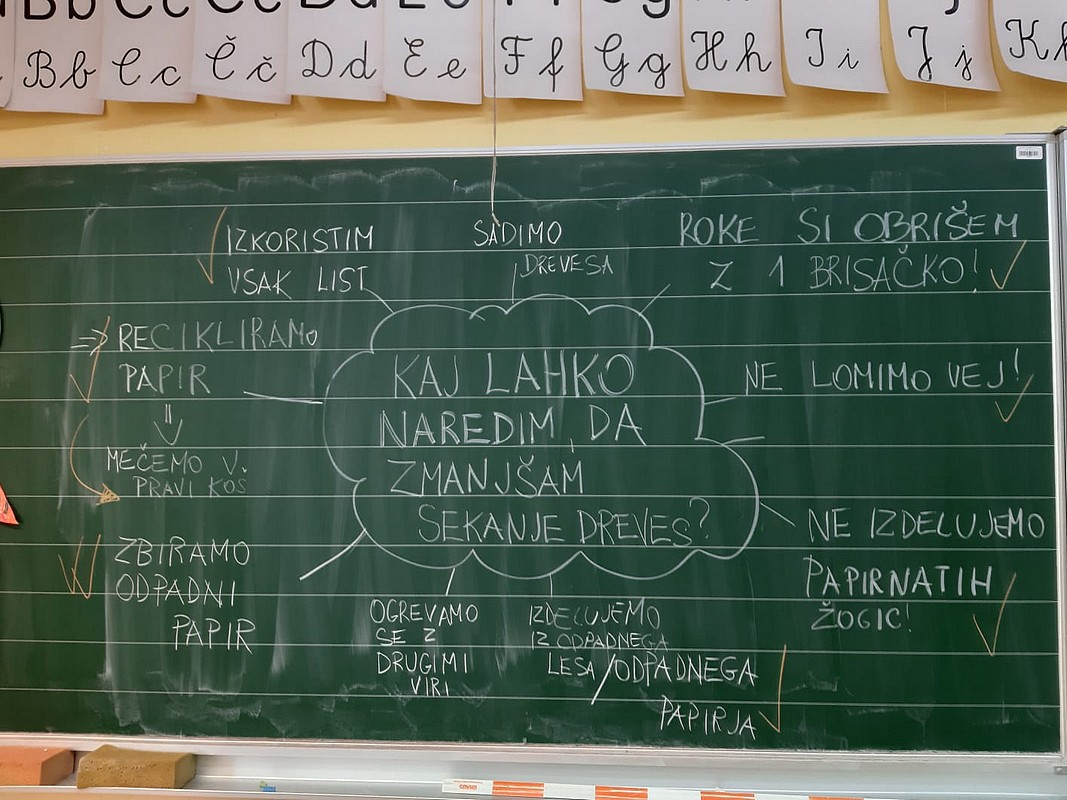 Bb
Cc
Čč
Dd
Ee
Ff
Gg
Hh
Ii
Jj
Bb
Cc
Čč
Dd
Ee
Ff
Gg
Hh
Ii
Jj
KAJ LAHKO
NAREDIM, DA
ZMANJŠAM
SEKANJE DREVES?
IZKORISTIM
VSAK LIST
SADIMO
DREVESA
ROKE SI OBRIŠEM
Z 1 BRISAČKO!
NE LOMIMO VEJ!
NE IZDELUJEMO
PAPIRNATIH
ŽOGIC!
IZDELUJEMO
IZ ODPADNEGA
LESA/ODPADNEGA
PAPIRJA
OGREVAMO
SE Z
DRUGIMI
VIRI
ZBIRAMO
ODPADNI
PAPIR
⇒ RECIKLIRAMO
PAPIR
⇓
MEČEMO V.
PRAVI KOS